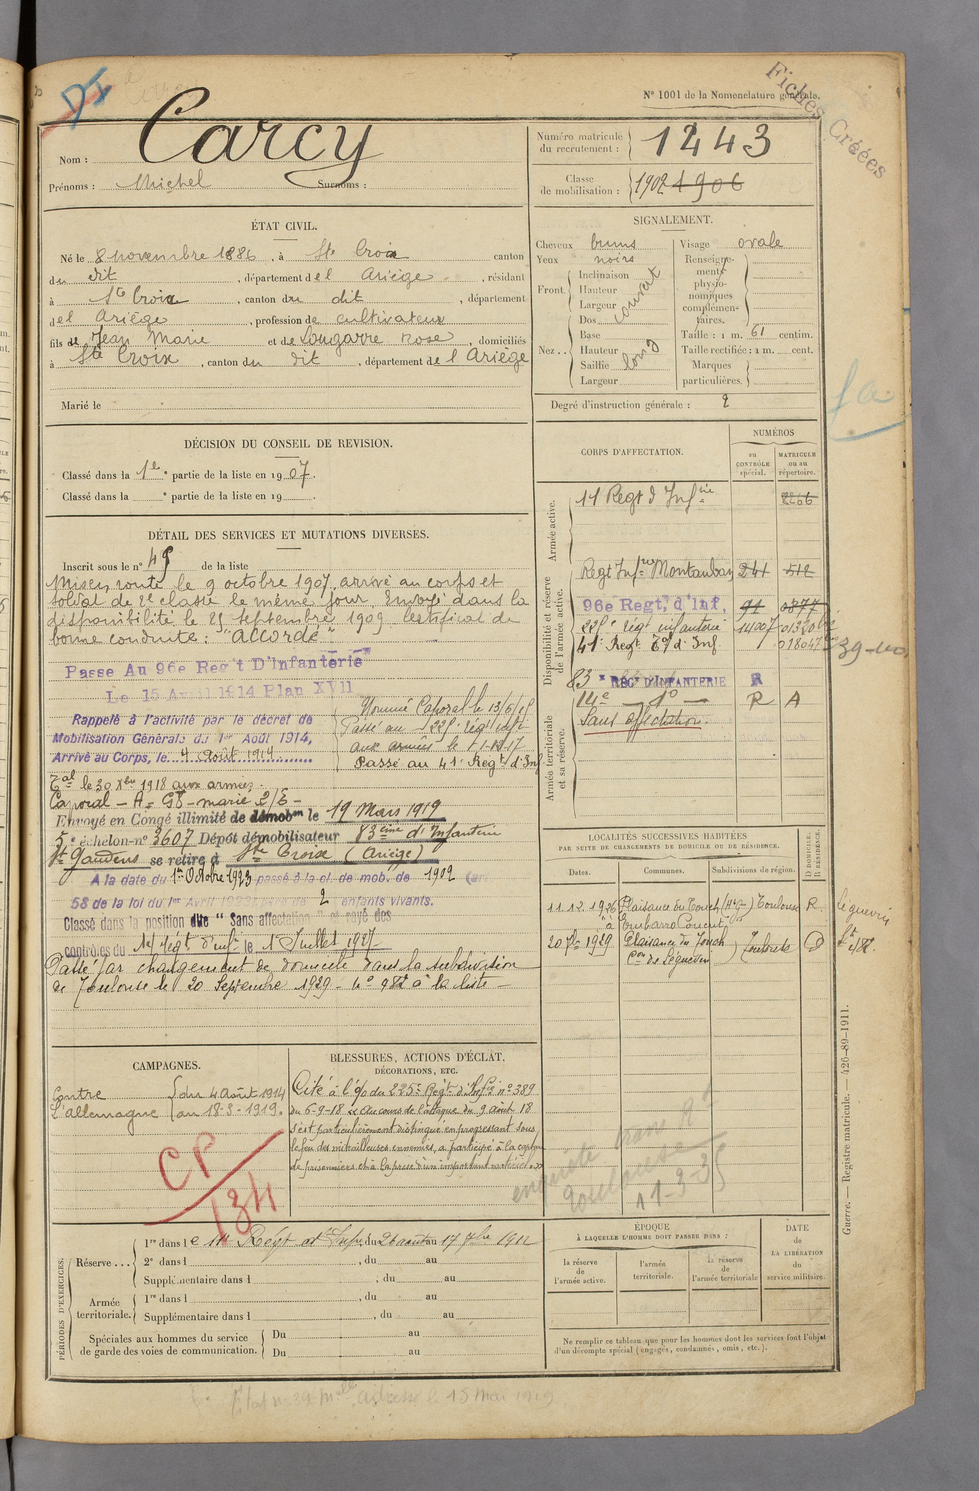 N° 1001 de la Nomenclature générale.
Fiches Créées
Nom : Carcy
Prénoms : Michel Surnoms :
Numéro matricule du recrutement : 1243
Classe de mobilisation : 1902 1906
ÉTAT CIVIL.
Né le 8 novembre 1886, à Ste Croix canton
du dit, département de l Ariège, résidant
à Ste Croix, canton du dit, département
de l Ariège, profession de cultivateur
fils de Jean Marie et de Lougarre Rose, domiciliés
à Ste Croix, canton du dit, département de l'Ariège
Marié le
SIGNALEMENT.
Cheveux bruns
Yeux noirs
Front. Inclinaison
Hauteur
Largeur
couvert
Nez .. Dos
Base
Hauteur
Saillie
Largeur
long
Visage ovale
Renseignements physionomiques complémentaires.
Taille : 1 m. 61 centim.
Taille rectifiée : 1 m. cent.
Marques particulières.
Degré d'instruction générale : 2
DÉCISION DU CONSEIL DE REVISION.
Classé dans la 1e partie de la liste en 1907.
Classé dans la e partie de la liste en 19 .
DÉTAIL DES SERVICES ET MUTATIONS DIVERSES.
Inscrit sous le n° 45 de la liste
Mis en route le 9 octobre 1907, arrivé au corps et
soldat de 2e classe le même jour. Envoyé dans la
disponibilité le 25 septembre 1909. Certificat de
bonne conduite : "Accordé"
Passe Au 96e Reg't D'Infanterie
Le 15 Avril 1914 Plan XVII
Rappelé à l'activité par le décret de
Mobilisation Générale du 1er Août 1914,
Arrivé au Corps, le 4 Août 1914
Nommé Caporal le 13/6/15
Passé au 225e rég't inf'
aux armées le 1-12-17
Passé au 41e Regt d'Inf
le 30 Xbre 1918 aux armées
Caporal
Envoyé en Congé illimité de démobon le 19 Mars 1919
5e échelon n° 3607 Dépôt démobilisateur 83eme d'Infanterie
St Gaudens se retire à Ste Croix (Ariège)
A la date du 1er Octobre 1923 passé à la cl. de mob. de 1902 (art
58 de la loi du 1er Avril 1923) père de 2 enfants vivants.
Classé dans la position dite "Sans affectation" et rayé des
contrôles du 14e rég't d'inf'ie le 1er Juillet 1927
Passé par changement de domicile dans la subdivision
de Toulouse le 20 Septembre 1929 - n° 982 à la liste -
CORPS D'AFFECTATION.
NUMÉROS
au CONTRÔLE spécial.
MATRICULE ou au répertoire.
Armée active.
11 Regt d'Infrie
2266
Disponibilité et réserve de l'armée active.
Regt Infrie Montauban 241 512
96e Regt. d'Inf. 91 0377
225e rég't infanterie 14007
41e Regt d'Inf 018047
Armée territoriale et sa réserve.
83e REGt D'INFANTERIE R
14e - do R A
Sans affectation.
LOCALITÉS SUCCESSIVES HABITÉES
PAR SUITE DE CHANGEMENTS DE DOMICILE OU DE RÉSIDENCE.
Dates. Communes. Subdivisions de région. D DOMICILE. R RÉSIDENCE.
11.12.1926 Plaisance du Touch (Hte Gne) Toulouse R.
à Embarro
20 7bre 1929 Plaisance du Touch Toulouse D
con de Léguevin
Guerre. — Registre matricule. — 426-89-1911.
CAMPAGNES.
Contre l'allemagne du 4 Août 1914
au 18-3-1919.
CP
134
BLESSURES, ACTIONS D'ÉCLAT, DÉCORATIONS, ETC.
Cité à l'o/ du 225e Régt d'Infie n° 389
du 6-9-18 « Au cours de l'attaque du 9 août 18
s'est particulièrement distingué en progressant sous
le feu des mitrailleuses ennemies, a participé à la capture
de prisonniers et à la prise d'un important matériel. »
Toulouse
11-3-35
PÉRIODES D'EXERCICES.
Réserve ... 1re dans l e 11e Régt d'Infie, du 26 août au 17 7bre 1911
2e dans l , du au
Supplémentaire dans l , du au
Armée territoriale. 1re dans l , du au
Supplémentaire dans l , du au
Spéciales aux hommes du service de garde des voies de communication. Du au
Du au
ÉPOQUE
À LAQUELLE L'HOMME DOIT PASSER DANS :
la réserve de l'armée active.
l'armée territoriale.
la réserve de l'armée territoriale
DATE DE LA LIBÉRATION du service militaire.
Ne remplir ce tableau que pour les hommes dont les services font l'objet
d'un décompte spécial (engagés, condamnés, omis, etc.).
le 15 Mai 1919